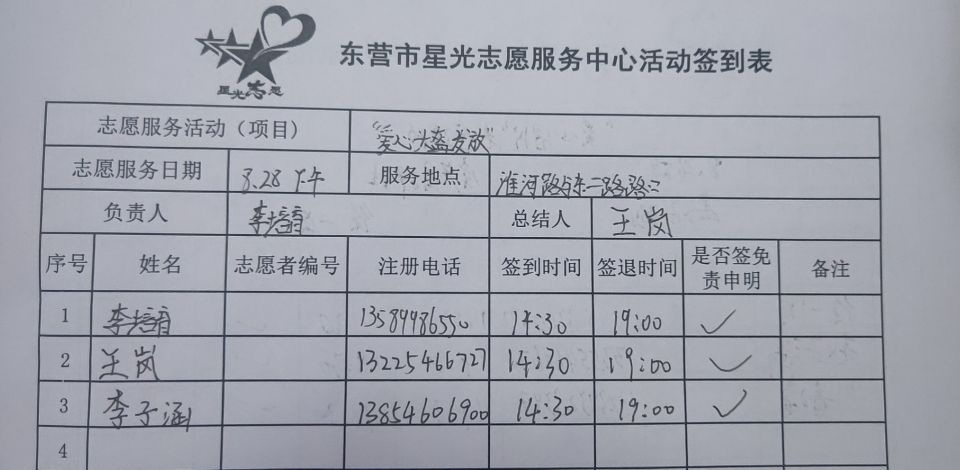 星光志愿
东营市星光志愿服务中心活动签到表
志愿服务活动（项目） "爱心头盔发放"
志愿服务日期 8.28 下午 服务地点 淮河路与东二路路口
负责人 李培育 总结人 王岚
序号 姓名 志愿者编号 注册电话 签到时间 签退时间 是否签免责申明 备注
1 李培育 13589986550 14:30 19:00 ✓
2 王岚 13225466727 14:30 19:00 ✓
3 李子涵 13854606900 14:30 19:00 ✓
4